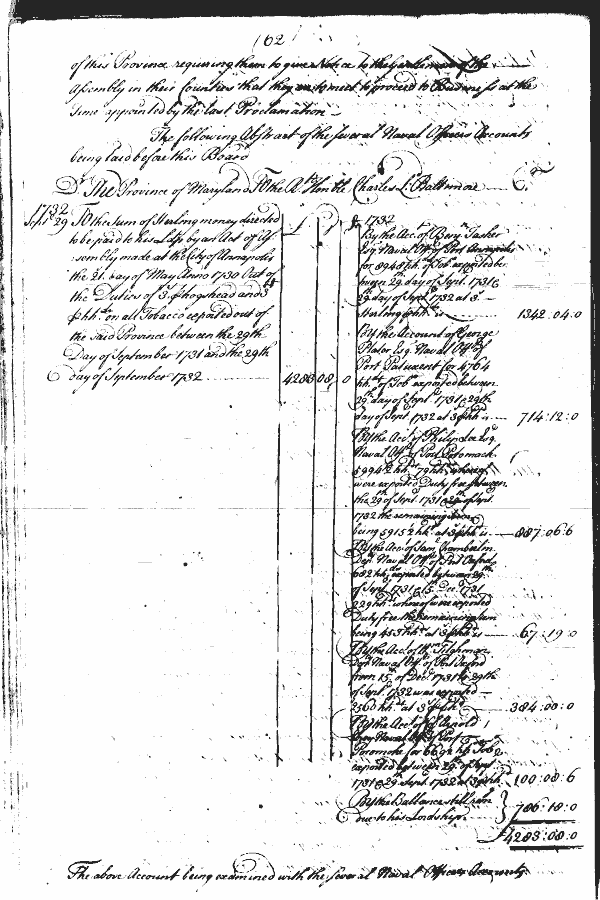 (62
of this Province requiring them to give Notice to the Gentlemen of the
Assembly in their Counties that they are to meet to proceed to Business at the
Time appointed by the last Proclamation
The following Abstract of the several Naval Officers Accounts
being laid before this Board
Dr. The Province of Maryland To the Rt. Honble Charles Ld. Baltimore Cr.
1732
Sept. 29 To the Sum of Sterling money directed
to be paid to his Ldp by an Act of As
sembly made at the City of Annapolis
the 21. day of May Anno 1730 Out of
the Duties of 3. phogshead and 3
phhd. on all Tobacco exported out of
the said Province between the 29th
Day of September 1731 and the 29th
day of September 1732 4283 08, 0
1732
By the Acct. of Benj. Tasker
Esq. Naval Offr. of Port Annapolis
for 8948 hhds. of Tob. exported be
tween 29. day of Sept. 1731 &
29. day of Sept. 1732 at 3
Sterling phhd. is 1342.04:0
By the Account of George
Plater Esq. Naval Offr. of
Port Patuxent for 4764
hhds. of Tob. exported between
29. day of Sept. 1731 & 29th
day of Sept. 1732 at 3 phhd. is 714:12:0
By the Acct. of Philip Lee Esq.
Naval Offr. of Port Potomack
5994½ hhds. 79 hhds. whereof
were exported Duty free between
the 29 of Sept. 1731 & 29 of Sept.
1732 the remaining
being 5915½ hhds. at 3 phhd. is 887:06:6
By the Acct. of Sam. Chamberlin
Dep. Naval Offr. of Port Oxford
682 hhds. exported between 29th
of Sept. 1731 & 15. Dec. 1731
229 hhds. whereof were exported
Duty free the remaining
being 453 hhds. at 3 phhd. is 67:19:0
By the Acct. of Wm. Tilghman
Dep. Naval Offr. of Port Oxford
from 15. of Dec. 1731 to 29th
of Sept. 1732 was exported
2560 hhds. at 3 phhd. 384:00:0
By the Acct. of
Naval Offr. of Port
Pocomoke for hhds. Tob.
exported between 29. of Sept.
1731 & 29. Sept. 1732 at 3 phhd. 100:08:6
By the Ballance still
due to his Lordship 786:18:0
4283:08:0
The above Account being examined with the several Naval Officers Accounts